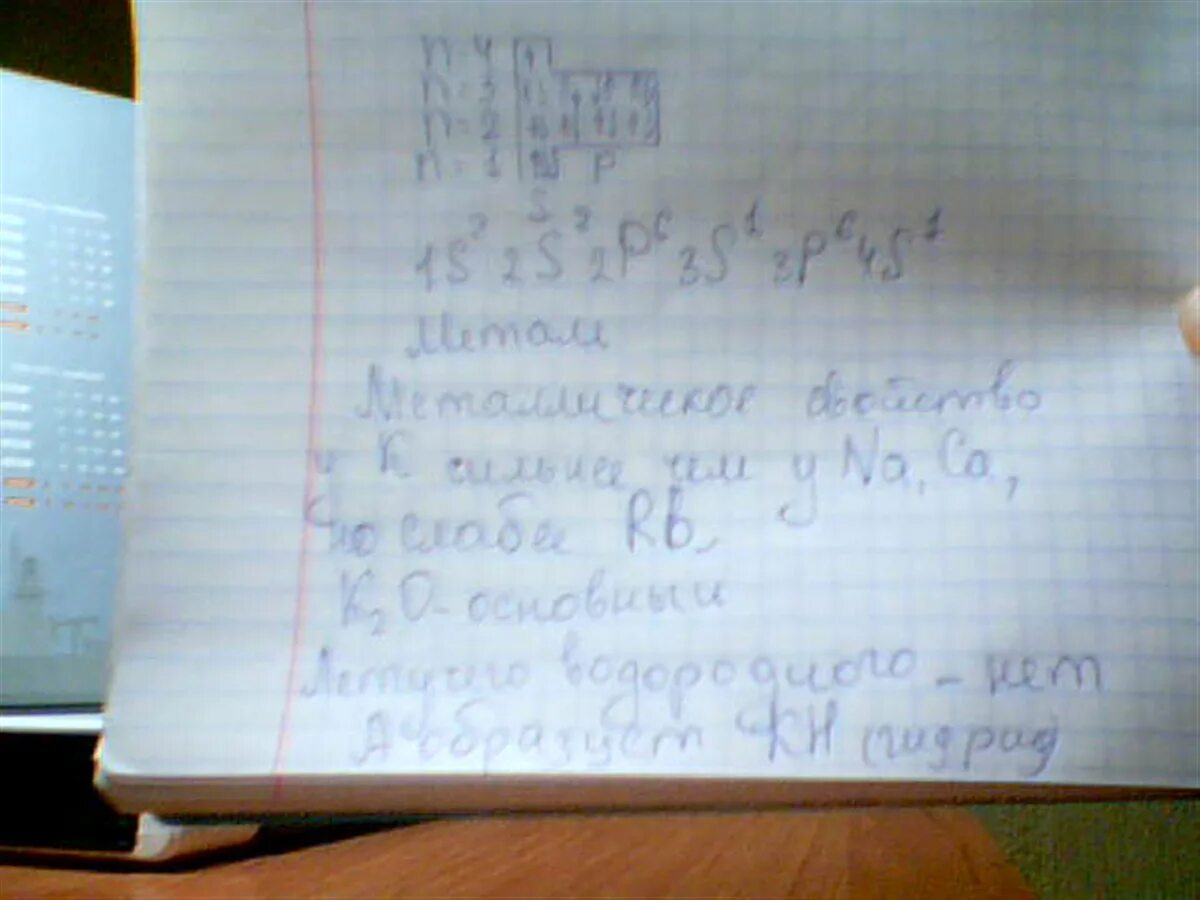 n=4
n=3
n=2
n=1 P
S
1S² 2S² 2P⁶ 3S¹ 3P⁶ 4S¹
Метал
Металлическое свойство
у К сильнее чем у Na, Ca,
но слабее RB.
K₂O - основный
Летучго водородного - нет
А образует KH (гидрид